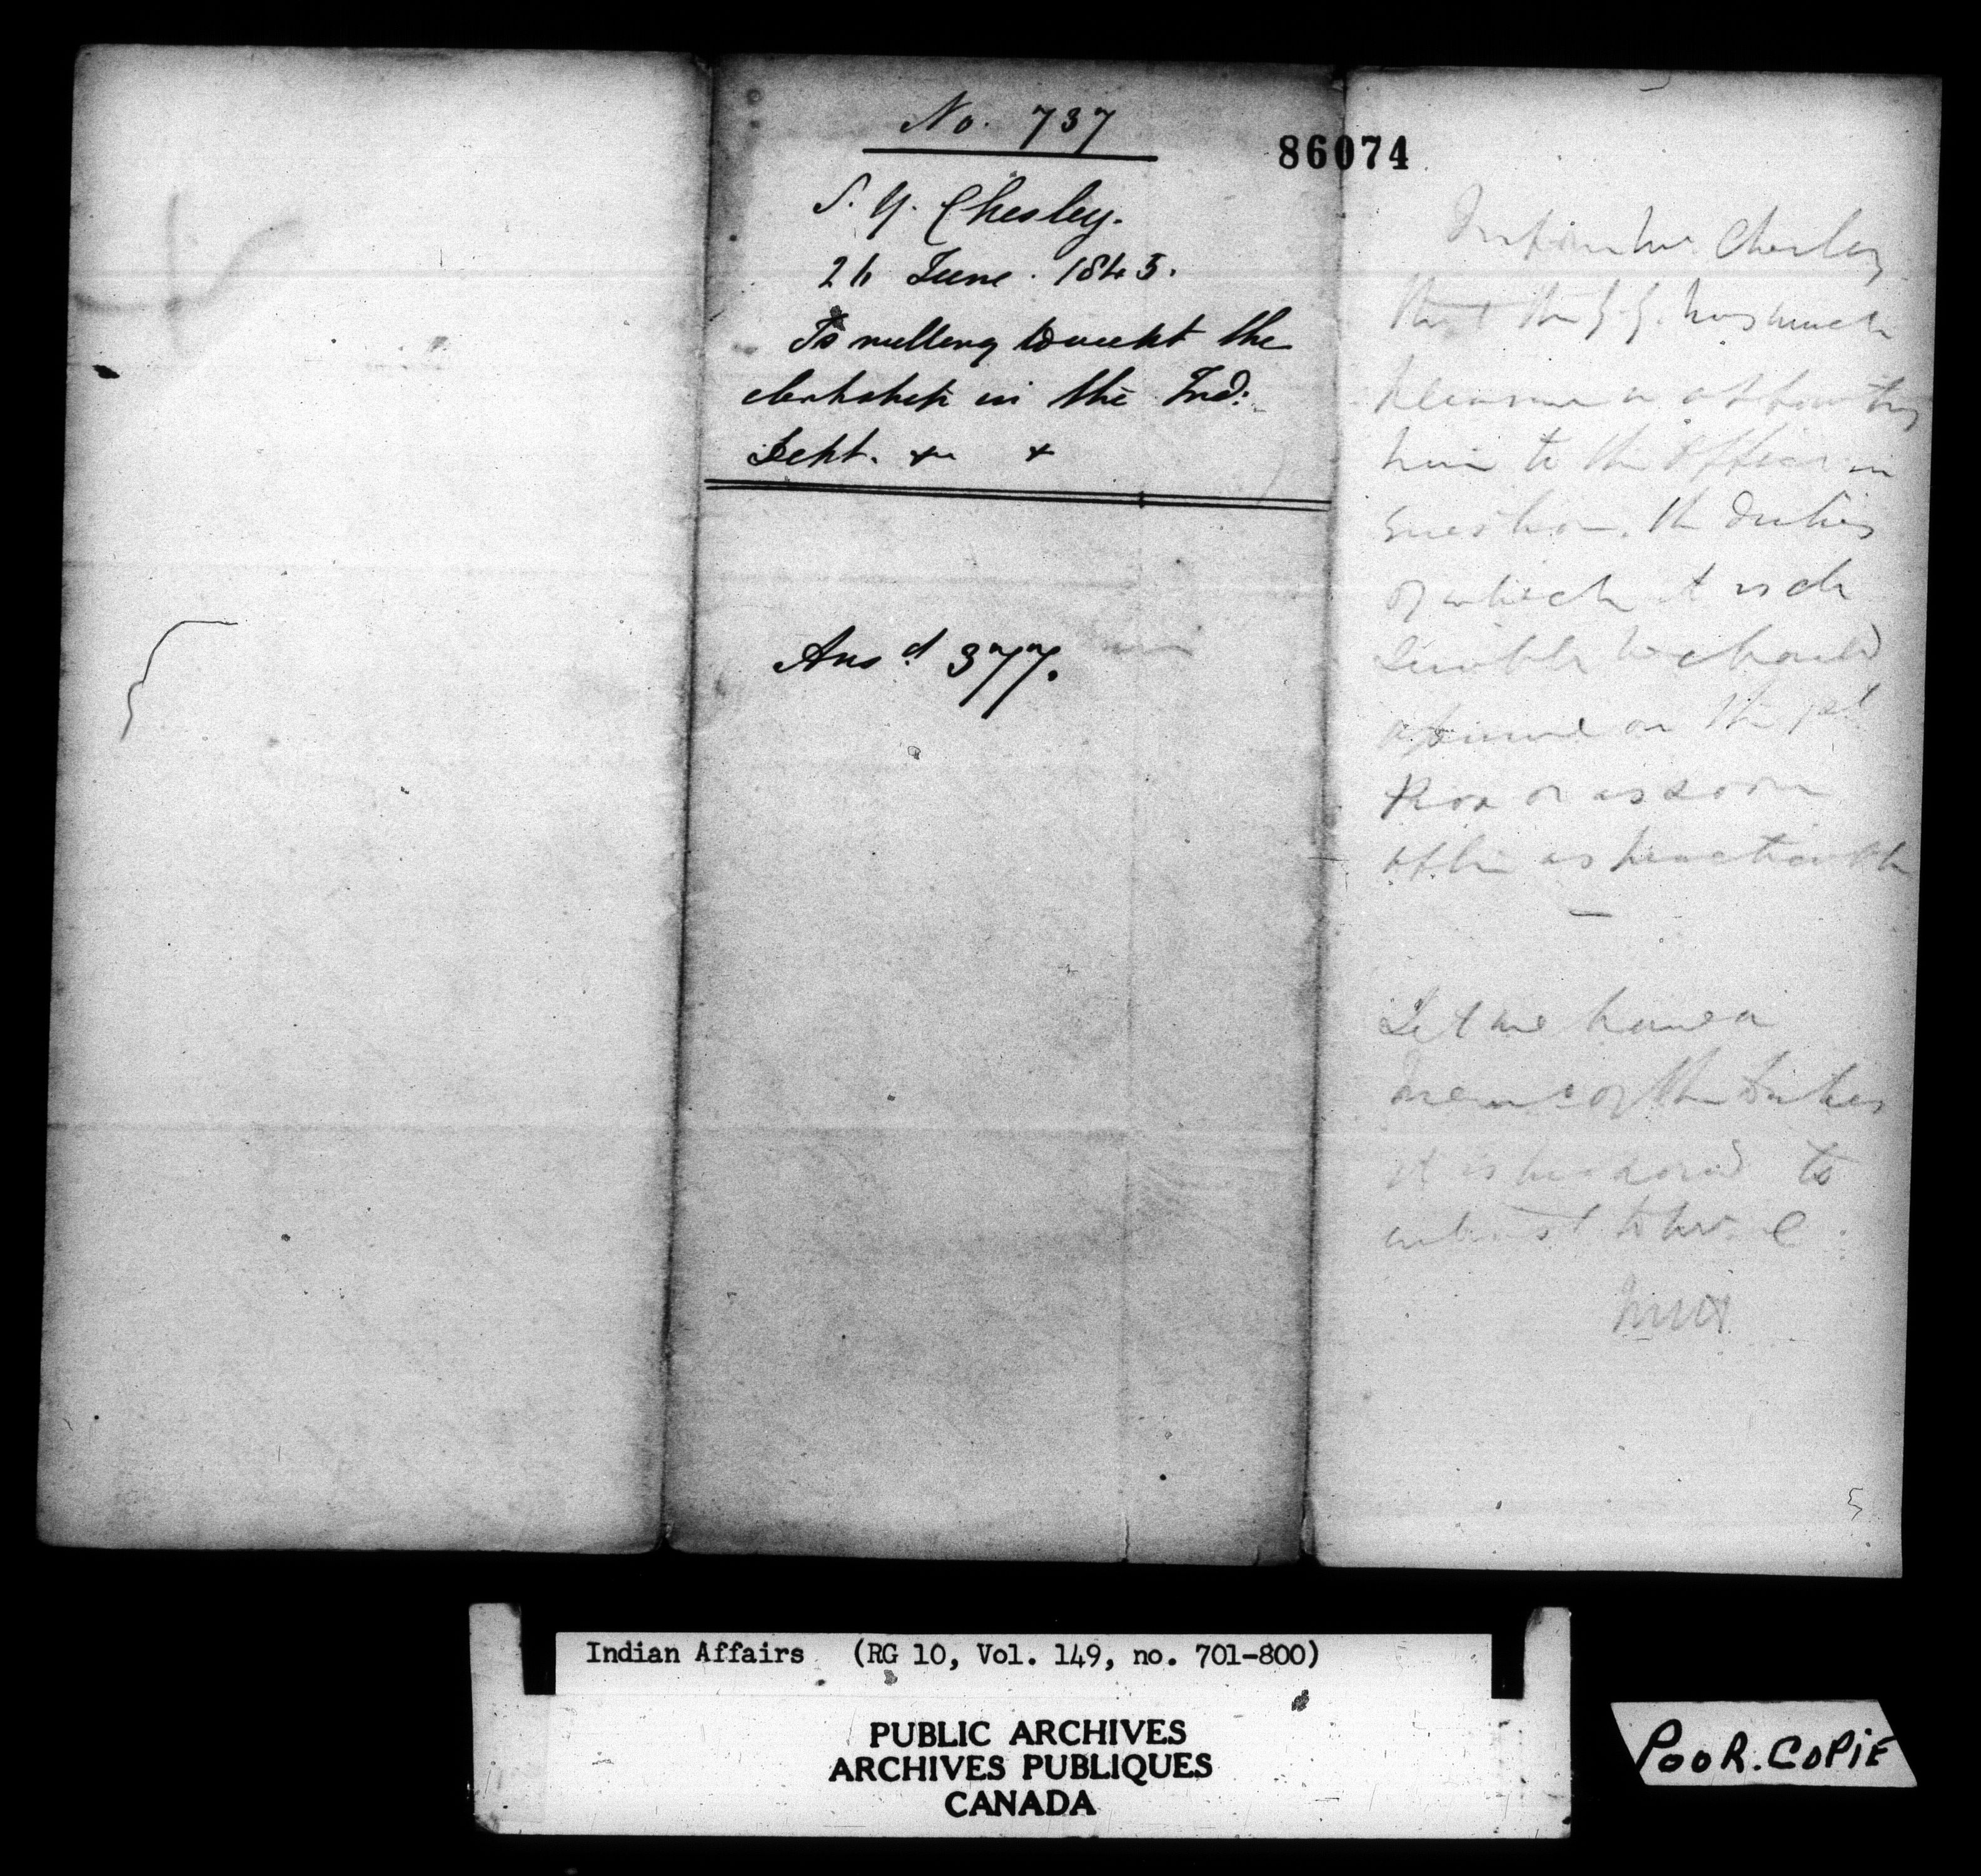 No. 737
86074
S. Y. Chesley.
26 June. 1845.
Is willing to accept the
clerkship in the Ind:
Dept. &c &c
Ansd 377.
Inform Mr. Chesley
that the G. G. has much
pleasure in appointing
him to the office in
question. the duties
of which it is de
sirable he should
assume on the 1st
Prox or as soon
after as practicable
Let me have a
Memo of the duties
it is proposed to
entrust to Mr. C
Indian Affairs (RG 10, Vol. 149, no. 701-800)
PUBLIC ARCHIVES
ARCHIVES PUBLIQUES
CANADA
POOR. COPIE